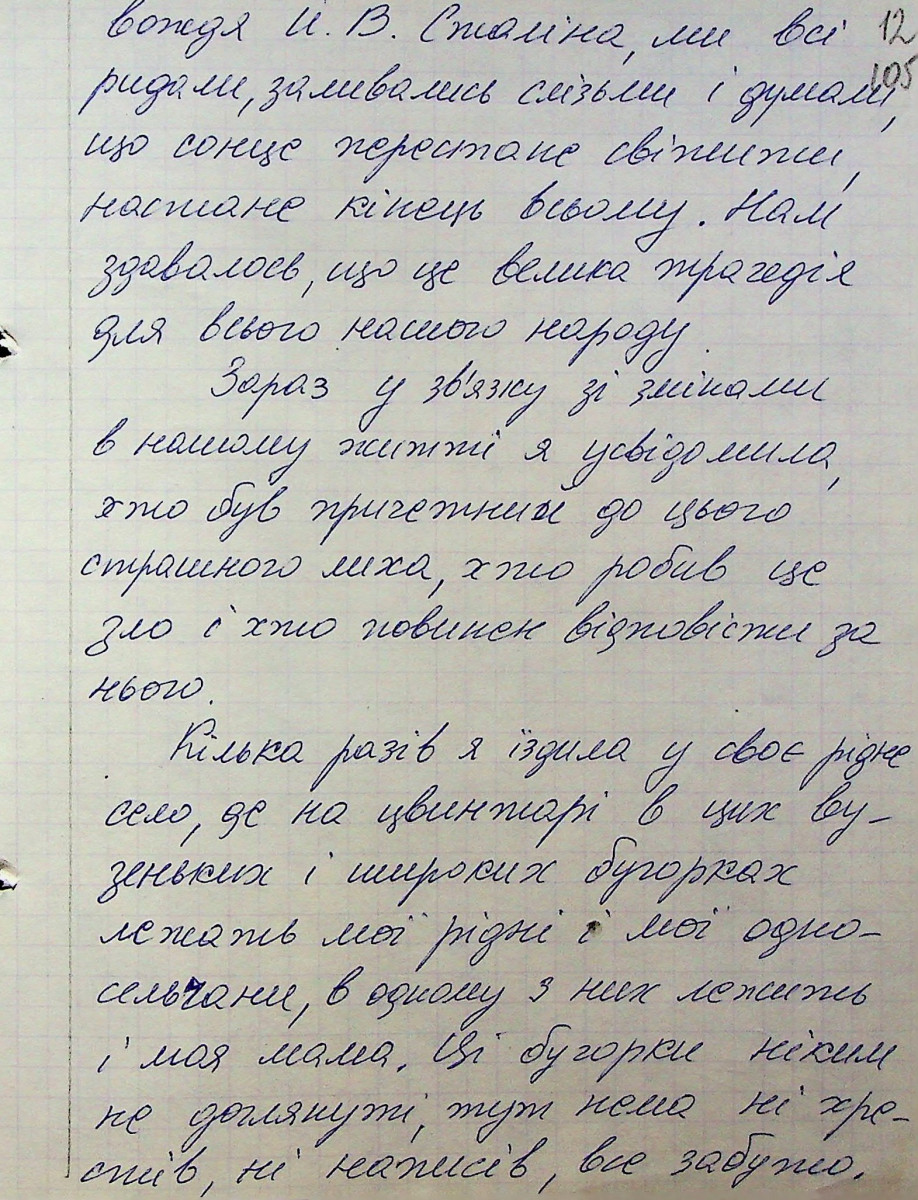 вождя Й. В. Сталіна, ми всі 12
ридали, заливались слізьми і думали, 105
що сонце перестане світити,
настане кінець всьому. Нам
здавалось, що це велика трагедія
для всього нашого народу.
Зараз у зв'язку зі змінами
в нашому житті я усвідомила,
хто був причетний до цього
страшного лиха, хто робив це
зло і хто повинен відповісти за
нього.
Кілька разів я їздила у своє рідне
село, де на цвинтарі в цих ву-
зеньких і широких бугорках
лежать мої рідні і мої одно-
сельчани, в одному з них лежить
і моя мама. Ці бугорки ніким
не доглянуті, тут нема ні хре-
стів, ні написів, все забуто.